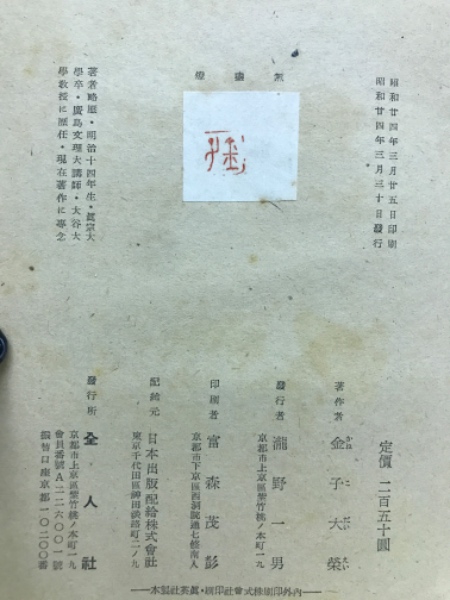 昭和廿四年三月廿五日印刷
昭和廿四年三月三十日發行
無盡燈
著者略歴・明治十四年生・眞宗大
學卒・廣島文理大講師・大谷大
學敎授に歴任・現在著作に專念
定價 二百五十圓
著作者 金子大榮
かね こ だい えい
發行者 瀧野一男
京都市上京區紫竹桃ノ本町一九
印刷者 富森茂彭
京都市下京區西洞院通七條南入
配給元 日本出版配給株式會社
東京千代田區神田淡路町二ノ九
發行所 全人社
京都市上京區紫竹桃ノ本町一九
會員番號A二一六〇〇一號
振替口座京都一〇二〇〇番
内外印刷株式會社印刷・眞英社製本